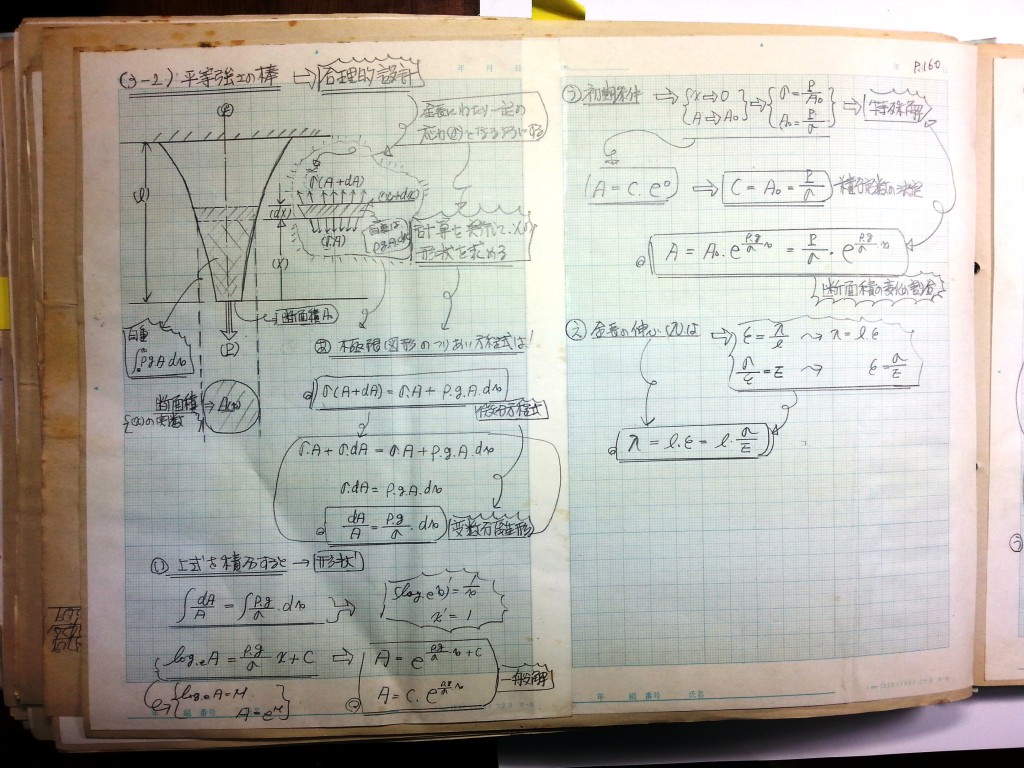 (3-2) 平等強さの棒 → 合理的設計
年 月 日
(l)
σ(A+dA)
(dx)
(σA)
(x)
自重は
ρgA.dx
計算を実施して、
形状を求める
断面積A₀
(P)
自重
∫ρgA dx
断面積
A(x)
(x)の関数
極限図形のつりあい方程式は!
σ(A+dA) = σ.A + ρ.g.A.dx
微分方程式
σ.A + σ.dA = σ.A + ρ.g.A.dx
σ.dA = ρ.g.A.dx
dA/A = ρ.g/σ . dx
変数分離形
① 上式を積分すると → 形状!
∫dA/A = ∫ρ.g/σ . dx
(log.e x)' = 1/x
x' = 1
log.e A = ρ.g/σ x + C ⇒ A = e^(ρg/σ.x + C)
A = C. e^(ρg/σ x)
一般解
{log.e A = M
A = e^M}
年 組 番号
P.160
初期条件 ⇒ {x→0 A→A₀} ⇒ {σ = P/A₀ A₀ = P/σ} ⇒ 特殊解
A = C. e⁰ ⇒ C = A₀ = P/σ 積分定数の決定
A = A₀. e^(ρ.g/σ x) = P/σ . e^(ρ.g/σ x)
断面積の変化の割合
② 全長の伸び(λ)は ⇒ ε = λ/l ⤳ λ = l.ε
σ/ε = E ⤳ ε = σ/E
λ = l.ε = l. σ/E
年 組 番号 氏名